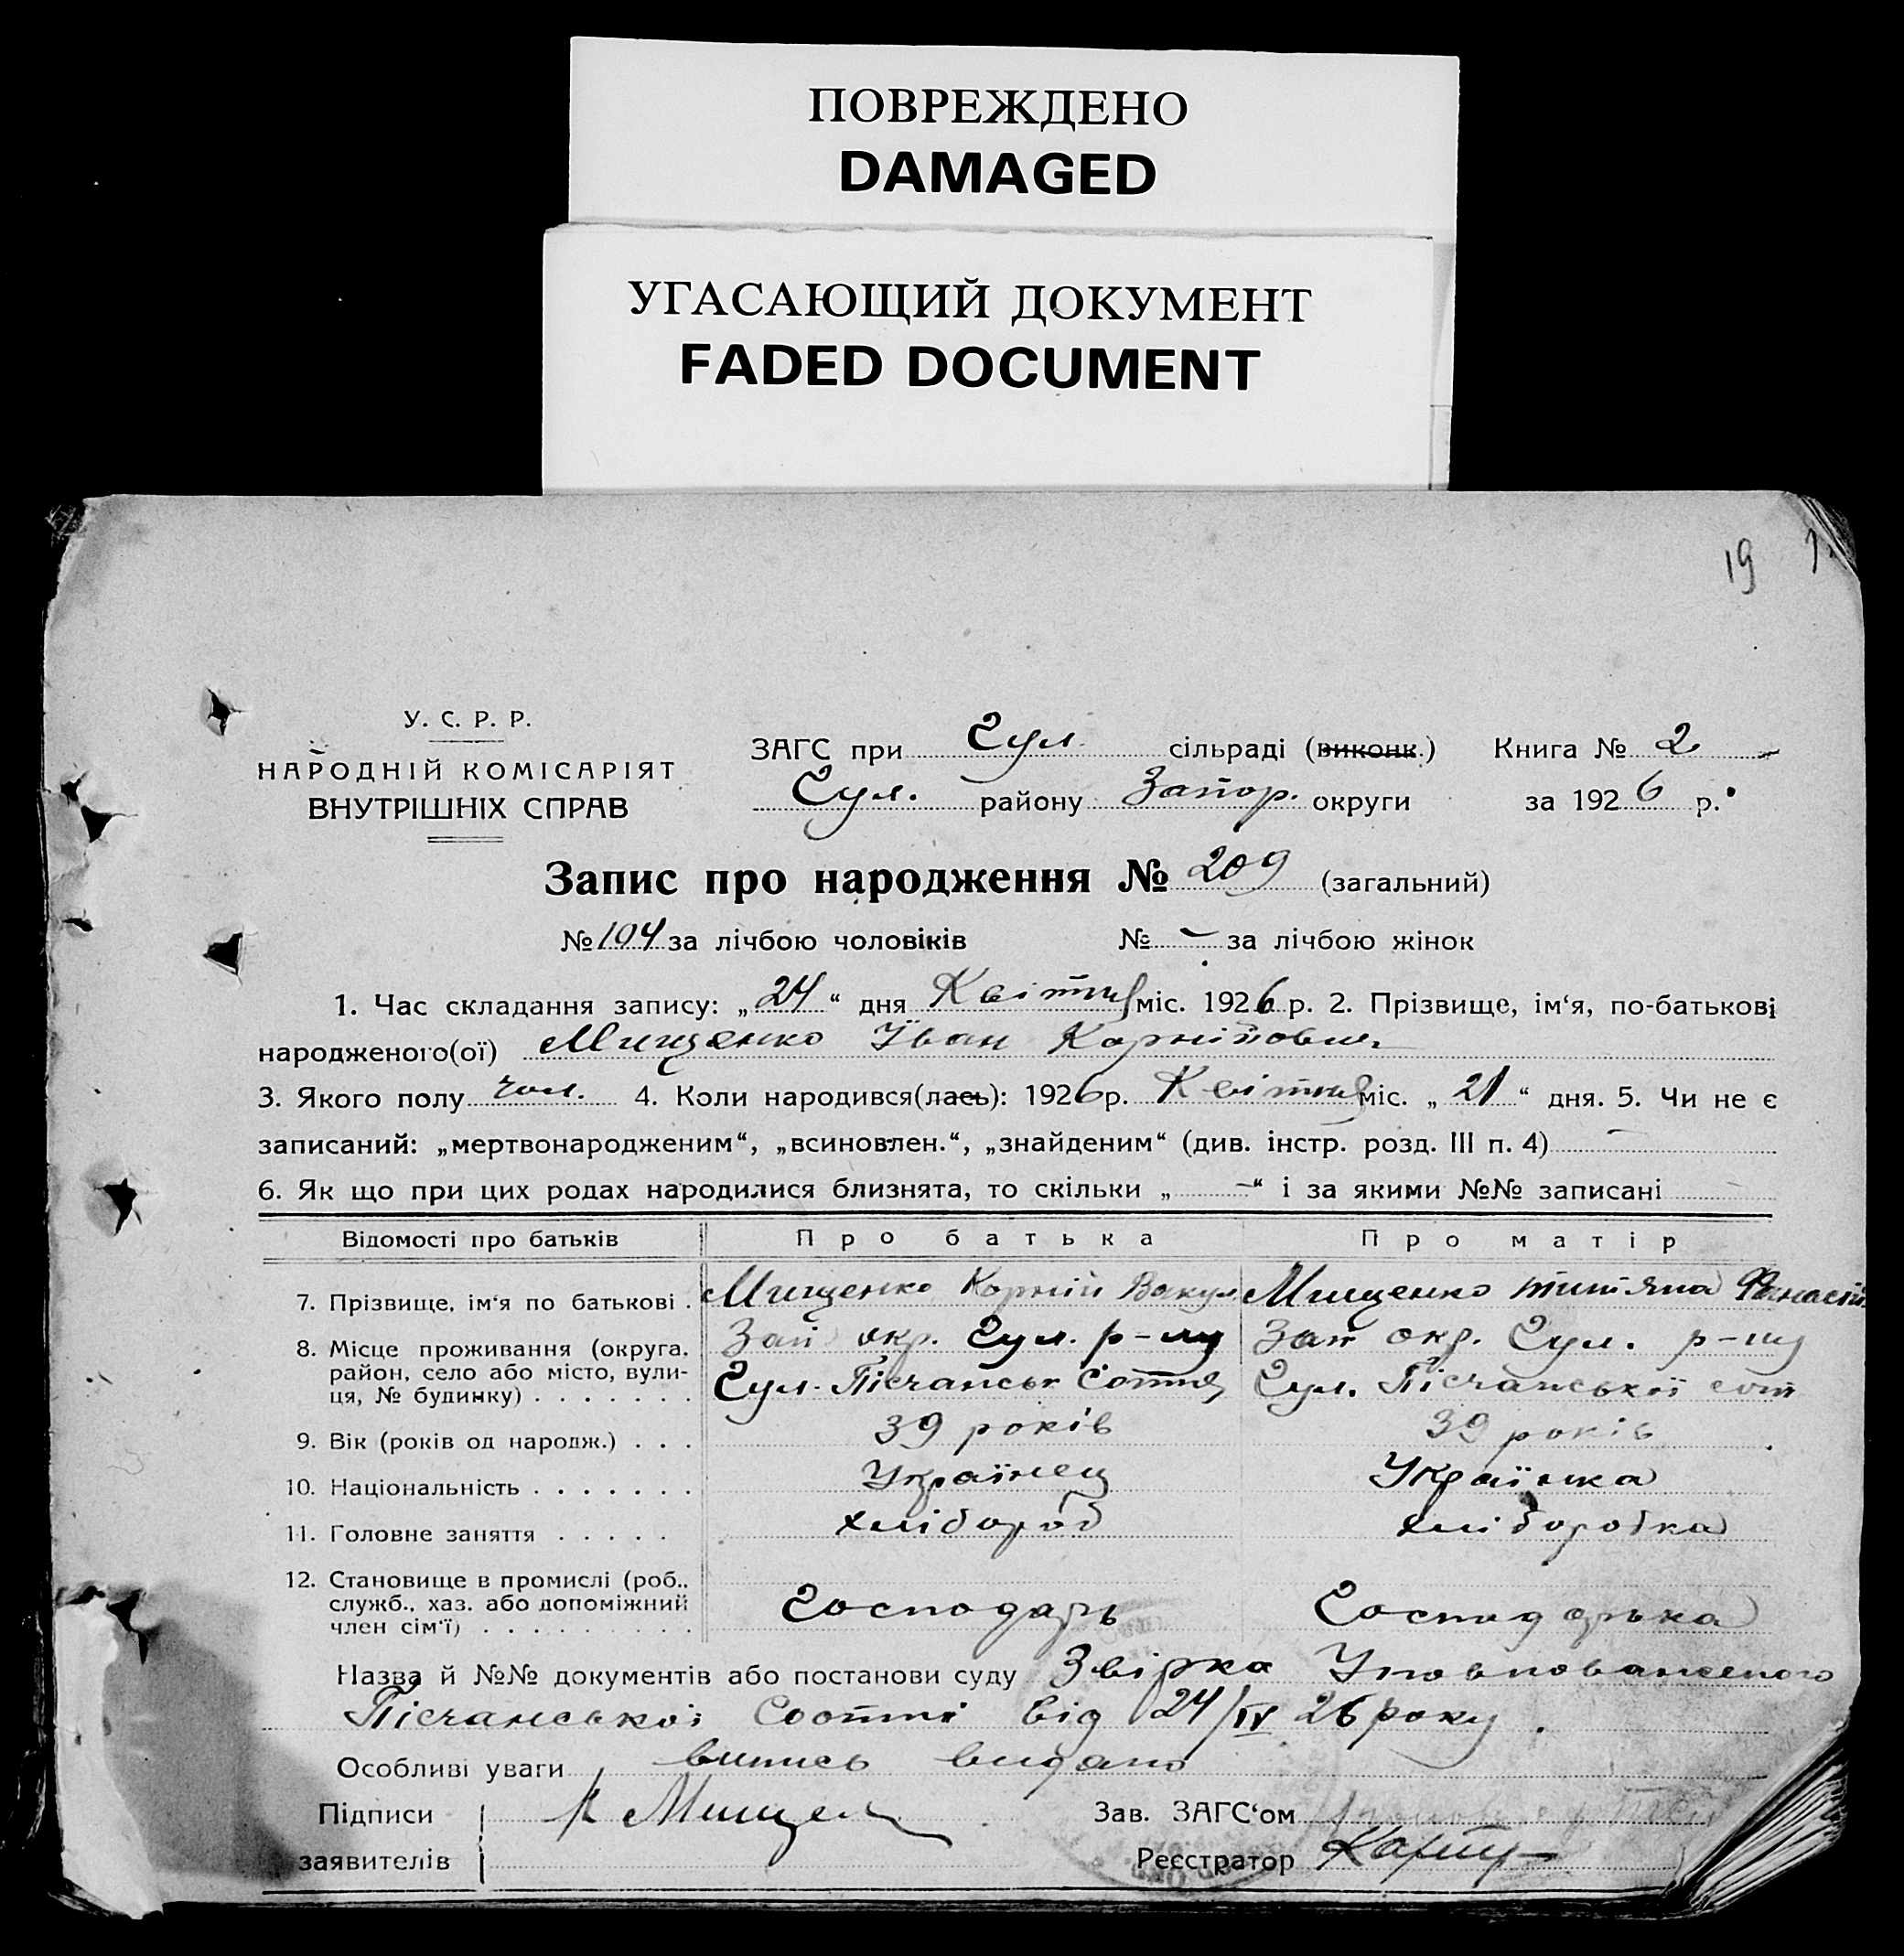 ПОВРЕЖДЕНО
DAMAGED
УГАСАЮЩИЙ ДОКУМЕНТ
FADED DOCUMENT
19
У. С. Р. Р.
НАРОДНІЙ КОМІСАРІЯТ
ВНУТРІШНІХ СПРАВ
ЗАГС при Гул. сільраді (виконк.) Книга № 2
Гул. району Запор. округи за 1926 р.
Запис про народження № 209 (загальний)
№ 104 за лічбою чоловіків № – за лічбою жінок
1. Час складання запису: „24“ дня Квітня міс. 1926 р. 2. Прізвище, ім‘я, по-батькові
народженого(ої) Мищенко Іван Корнійович
3. Якого полу чол. 4. Коли народився(лась): 1926 р. Квітня міс. „21“ дня. 5. Чи не є
записаний: „мертвонародженим“, „всиновлен.“, „знайденим“ (див. інстр. розд. III п. 4) –
6. Як що при цих родах народилися близнята, то скільки „–“ і за якими №№ записані –
Відомості про батьків Про батька Про матір
7. Прізвище, ім‘я по батькові . Мищенко Корній Вакул. Мищенко Титяна
8. Місце проживання (округа, район, село або місто, вулиця, № будинку) . . . . . . . Зап окр. Гул. р-ну Зап окр. Гул. р-ну
Гул. Пісчанськ Сотня Гул. Пісчанської сот
9. Вік (років од народж.) . . . 39 років 39 років
10. Національність . . . . . . . Українец Українка
11. Головне заняття . . . . . хлібороб хліборобка
12. Становище в промислі (роб., служб., хаз. або допоміжний член сім‘ї) . . . . . . . . . Господарь Господарька
Назва й №№ документів або постанови суду Звірка Уповноваженого
Пісчанської Сотні від 24/IV 26 року.
Особливі уваги випись видано
Підписи К Мищен Зав. ЗАГС‘ом
заявителів Реєстратор